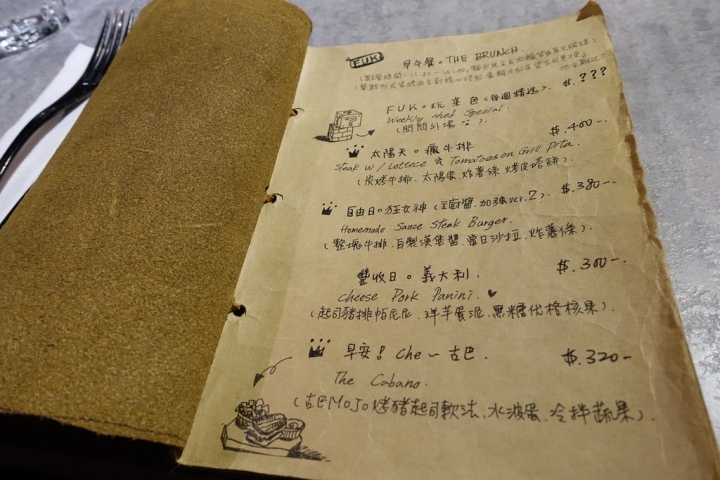 FUK
早午餐。THE BRUNCH
FUK。玩菜色(每週精選). $.???
Weekly chef Special.
(問問外場).
太陽天。瘋牛排 $.400-.
Steak w/ Lettece & Tomatoes on Grill Pita.
(炭烤牛排.太陽蛋.炸薯條.烤皮塔餅).
自由日。狂女神(主廚醬.加強ver.2). $.380-.
Homemade Sauce Steak Burger.
(整塊牛排.自製漢堡醬.當日沙拉.炸薯條).
豐收日。義大利. $.300-.
Cheese Pork Panini.
(起司豬排帕尼尼.洋芋蛋泥.黑糖佐核果).
早安!Che—古巴. $.320-
The Cubano.
(古巴MOJO烤豬起司軟法.水波蛋.冷拌蔬果).